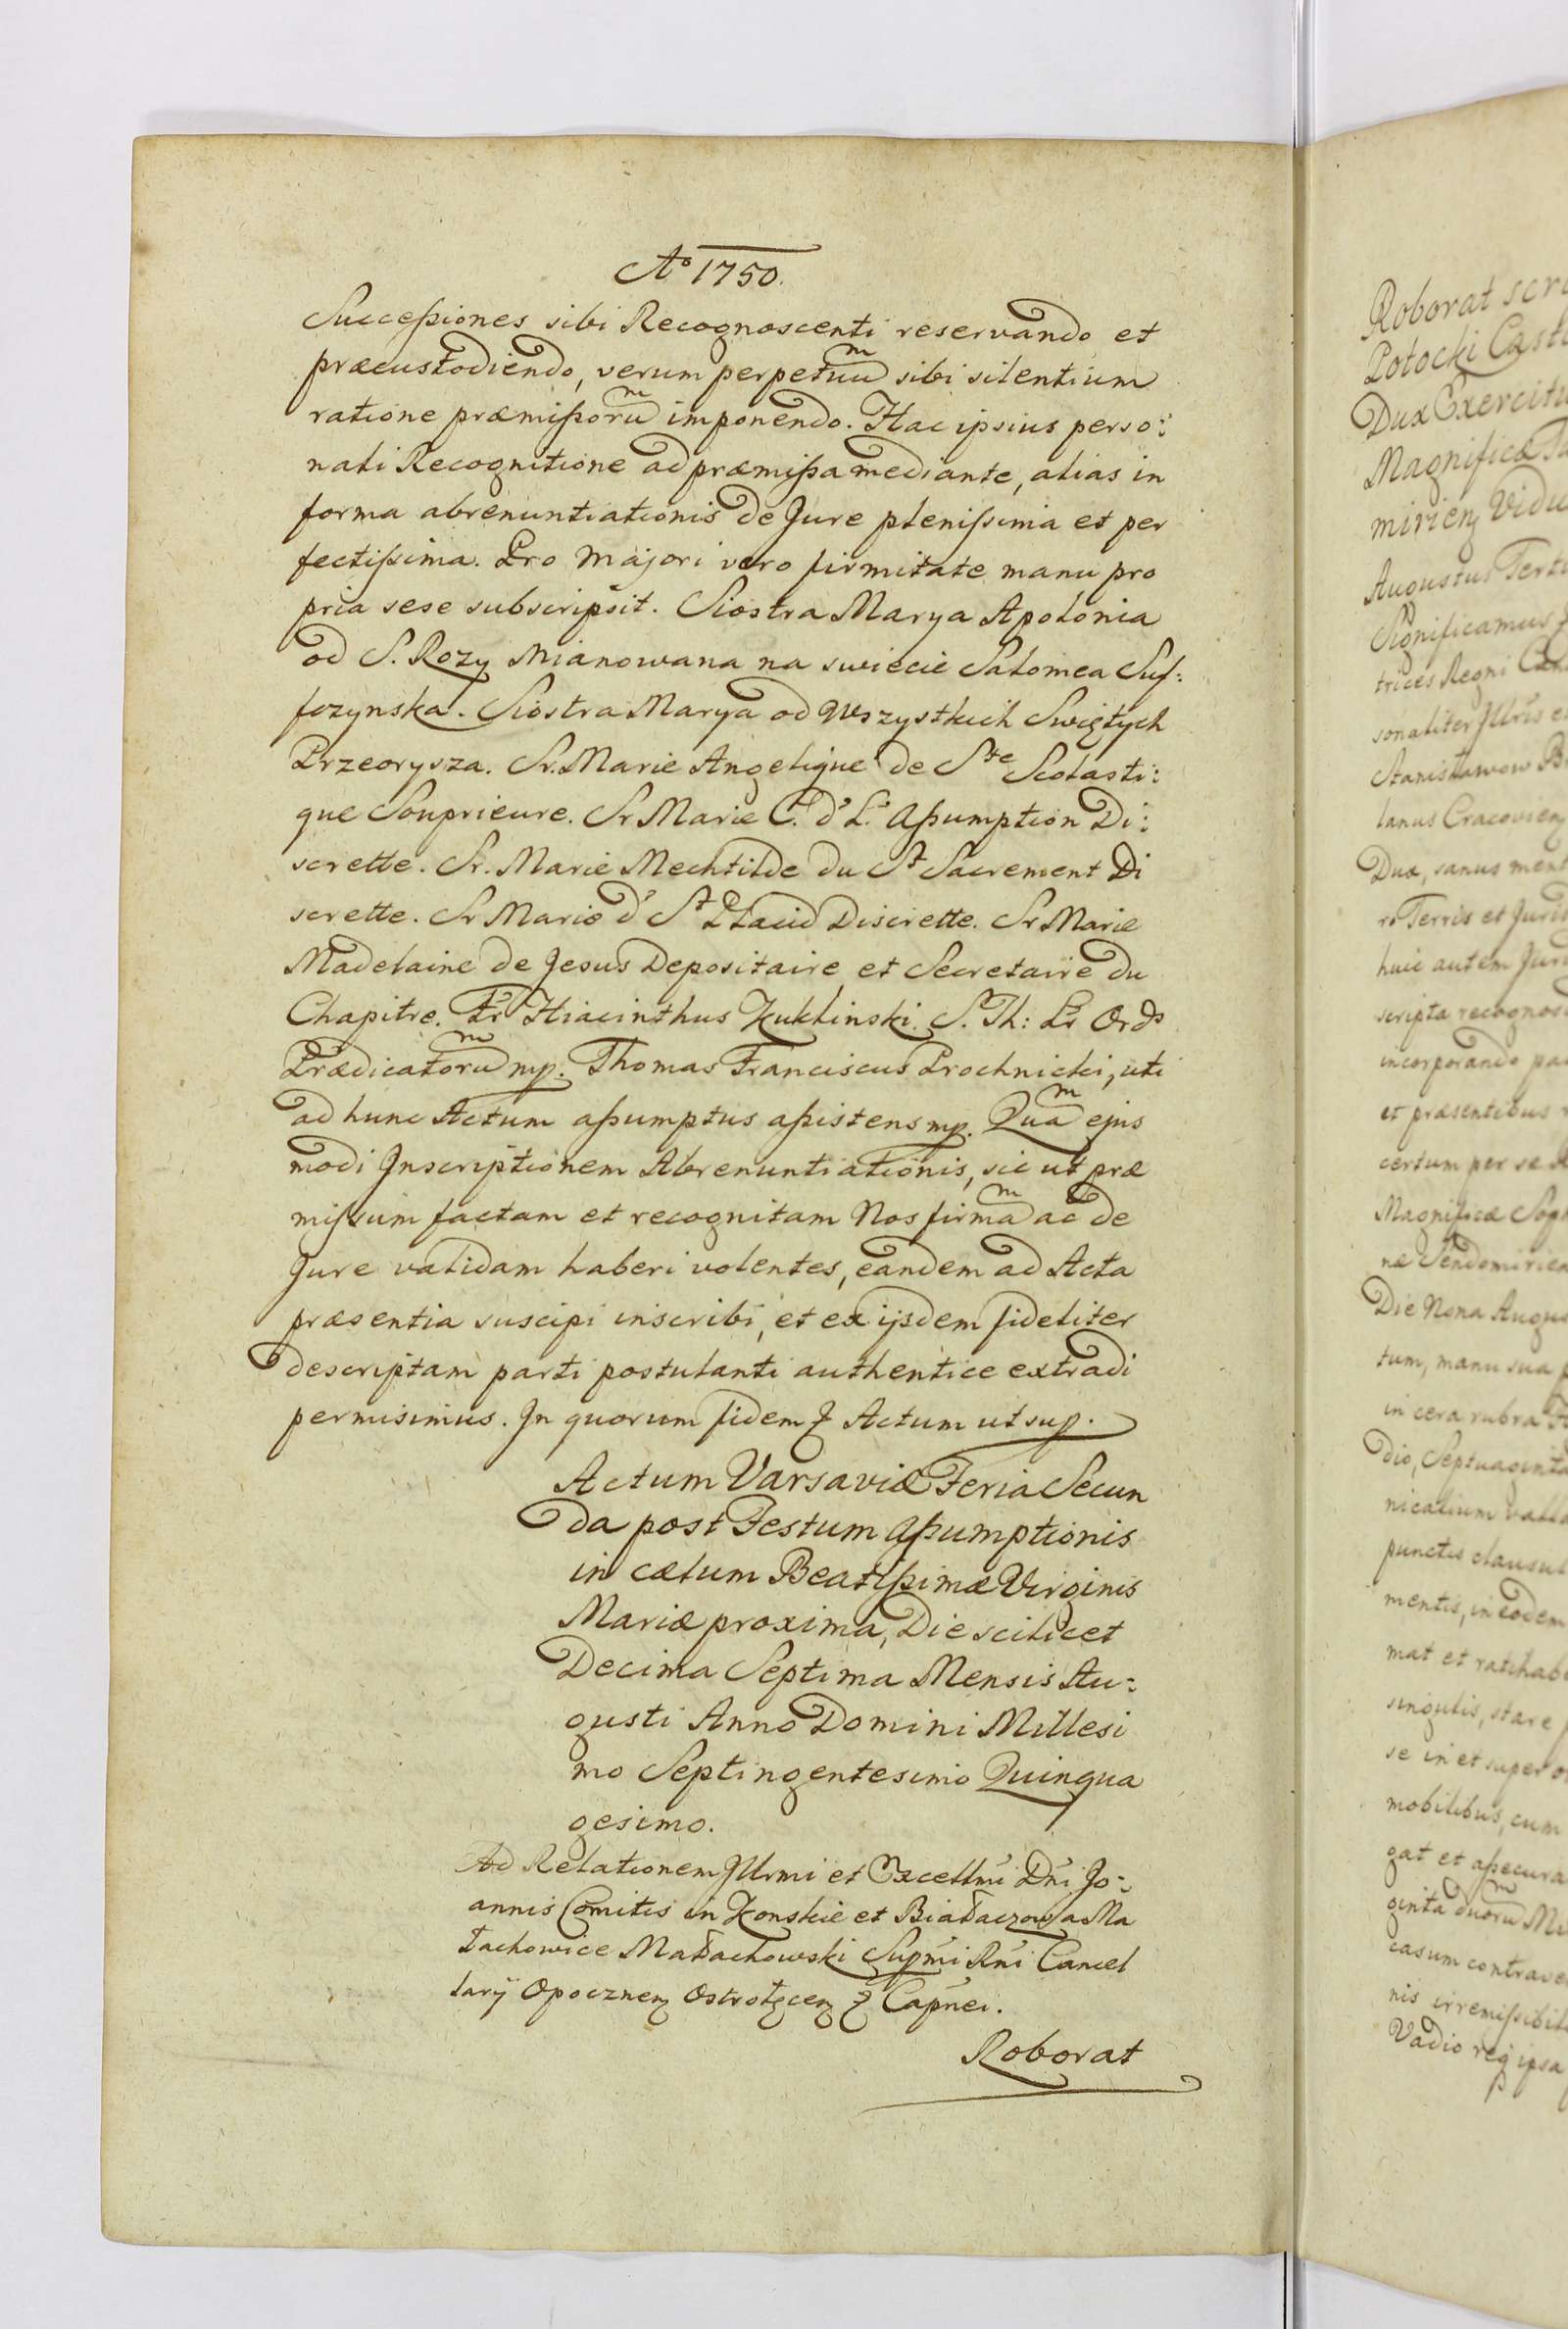 Aº 1750.
Successiones sibi Recognoscenti reservando et
præcustodiendo, verum perpetuum sibi silentium
ratione præmissorum imponendo. Hac ipsius perso:
nali Recognitione ad præmissa mediante, alias in
forma abrenuntiationis de Jure plenissima et per
fectissima. Pro majori vero firmitate manu pro
pria sese subscripsit. Siostra Marya Apolonia
od S. Rozy mianowana na swiecie Salomea Suf:
fczynska. Siostra Marya od Wszystkich Swiętych
Przeorysza. Sr. Marie Angelique de Ste Scolasti:
que Souprieure. Sr Marie C. d'L'Assumption Di:
scrette. Sr. Marie Mechtilde du St Sacrement Di
scrette. Sr Marie d' St Placid Discrette. Sr Marie
Madelaine de Jesus Depositaire et Secretaire du
Chapitre. Fr Hiacinthus Kuklinski. S. Th: Lr Ords
Prædicatorum mp. Thomas Franciscus Prochnicki, uti
ad hunc Actum assumptus assistens mp. Quam ejus
modi Inscriptionem Abrenuntiationis, sic ut præ
missum factam et recognitam Nos firmam ac de
Jure validam haberi volentes, eandem ad Acta
præsentia suscipi inscribi, et ex ijsdem fideliter
descriptam parti postulanti authentice extradi
permisimus. In quorum fidem & Actum ut sup.
Actum Varsaviæ Feria Secun
da post Festum Assumptionis
in cælum Beatissimæ Virginis
Mariæ proxima, Die scilicet
Decima Septima Mensis Au:
gusti Anno Domini Millesi
mo Septingentesimo Quinqua
gesimo.
Ad Relationem Jllrmi et Excellmi Dni Jo:
annis Comitis in Konskie et Białaczow a Ma
łachowice Małachowski Supmi Rni Cancel
larij Opocznen Ostrołęcen & Capnei.
Roborat
Roborat
Potocki
Dux
Magnificæ
mirien
Augustus
Significamus
trices Regni
sonaliter
Stanisławow
lanus Cracovien
Dux, sanus
Terris et
huic autem
scripta
incorporando
et præsentibus
certum per se
Magnificæ
Die Nona
tum, manu sua
in cera rubra
dio,
punctis
mentis, in eodem
mat et
singulis, stare
se in et super
mobilibus, cum
gat et
ginta duorum
casum
nis
Vadio ipsa